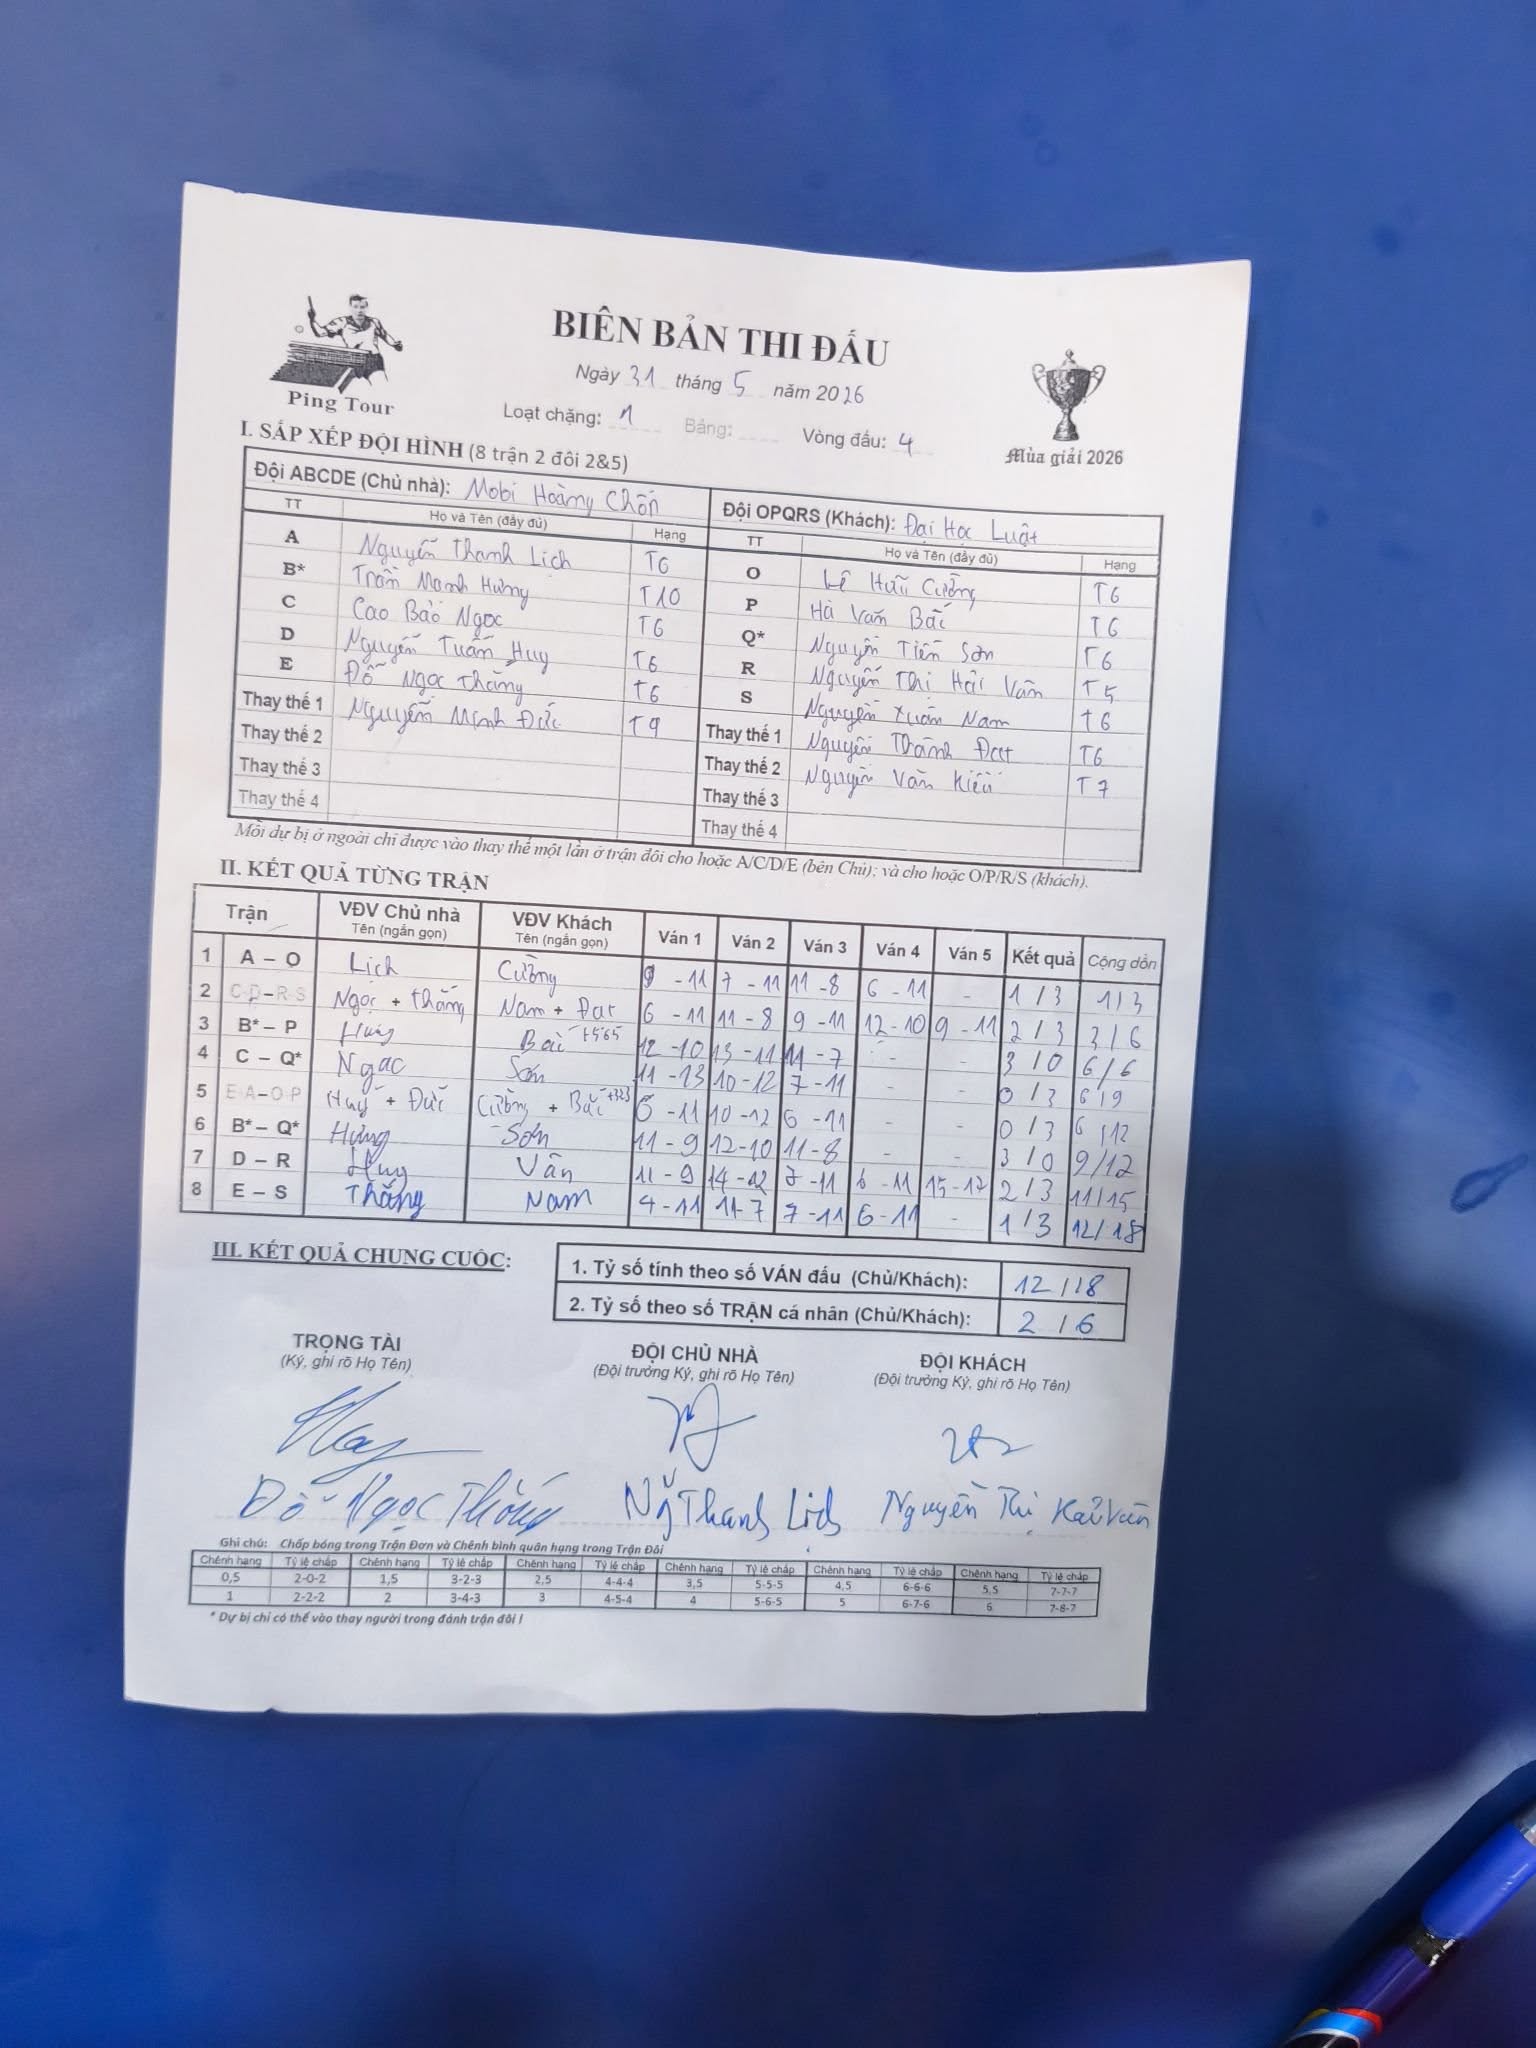 BIÊN BẢN THI ĐẤU
Ping Tour
Ngày 31 tháng 5 năm 2026
Loạt chặng: 1 Bảng: Vòng đấu: 4
Mùa giải 2026
I. SẮP XẾP ĐỘI HÌNH (8 trận 2 đôi 2&5)
Đội ABCDE (Chủ nhà): Mobi Hoàng Chốn Đội OPQRS (Khách): Đại Học Luật
TT Họ và Tên (đầy đủ) Hạng TT Họ và Tên (đầy đủ) Hạng
A Nguyễn Thanh Lịch T6 O Lê Hữu Cường T6
B* Trần Mạnh Hưng T10 P Hà Văn Bắc T6
C Cao Bảo Ngọc T6 Q* Nguyễn Tiến Sơn T6
D Nguyễn Tuấn Huy T6 R Nguyễn Thị Hải Vân T5
E Đỗ Ngọc Thắng T6 S Nguyễn Xuân Nam T6
Thay thế 1 Nguyễn Minh Đức T9 Thay thế 1 Nguyễn Thành Đạt T6
Thay thế 2 Thay thế 2 Nguyễn Văn T7
Thay thế 3 Thay thế 3
Thay thế 4 Thay thế 4
Mỗi dự bị ở ngoài chỉ được vào thay thế một lần ở trận đôi cho hoặc A/C/D/E (bên Chủ); và cho hoặc O/P/R/S (khách).
II. KẾT QUẢ TỪNG TRẬN
Trận VĐV Chủ nhà Tên (ngắn gọn) VĐV Khách Tên (ngắn gọn) Ván 1 Ván 2 Ván 3 Ván 4 Ván 5 Kết quả Cộng dồn
1 A – O Lịch Cường 9 - 11 7 - 11 11 - 8 6 - 11 - 1 / 3 1 / 3
2 C-D – R-S Ngọc + Thắng Nam + Đạt 6 - 11 11 - 8 9 - 11 12 - 10 9 - 11 2 / 3 3 / 6
3 B* – P Hưng Bắc +565 12 - 10 13 - 11 11 - 7 - - 3 / 0 6 / 6
4 C – Q* Ngọc Sơn 11 - 13 10 - 12 7 - 11 - - 0 / 3 6 / 9
5 E-A – O-P Huy + Đức Cường + Bắc +323 6 - 11 10 - 12 6 - 11 - - 0 / 3 6 / 12
6 B* – Q* Hưng Sơn 11 - 9 12 - 10 11 - 8 - - 3 / 0 9 / 12
7 D – R Huy Vân 11 - 9 14 - 12 7 - 11 6 - 11 15 - 17 2 / 3 11 / 15
8 E – S Thắng Nam 4 - 11 11 - 7 7 - 11 6 - 11 - 1 / 3 12 / 18
III. KẾT QUẢ CHUNG CUỘC:
1. Tỷ số tính theo số VÁN đấu (Chủ/Khách): 12 / 18
2. Tỷ số theo số TRẬN cá nhân (Chủ/Khách): 2 / 6
TRỌNG TÀI ĐỘI CHỦ NHÀ ĐỘI KHÁCH
(Ký, ghi rõ Họ Tên) (Đội trưởng Ký, ghi rõ Họ Tên) (Đội trưởng Ký, ghi rõ Họ Tên)
Đỗ Ngọc Thắng Ng Thanh Lịch Nguyễn Thị Hải Vân
Ghi chú: Chấp bóng trong Trận Đơn và Chênh bình quân hạng trong Trận Đôi
Chênh hạng Tỷ lệ chấp Chênh hạng Tỷ lệ chấp Chênh hạng Tỷ lệ chấp Chênh hạng Tỷ lệ chấp Chênh hạng Tỷ lệ chấp Chênh hạng Tỷ lệ chấp
0,5 2-0-2 1,5 3-2-3 2,5 4-4-4 3,5 5-5-5 4,5 6-6-6 5,5 7-7-7
1 2-2-2 2 3-4-3 3 4-5-4 4 5-6-5 5 6-7-6 6 7-8-7
* Dự bị chỉ có thể vào thay người trong đánh trận đôi !